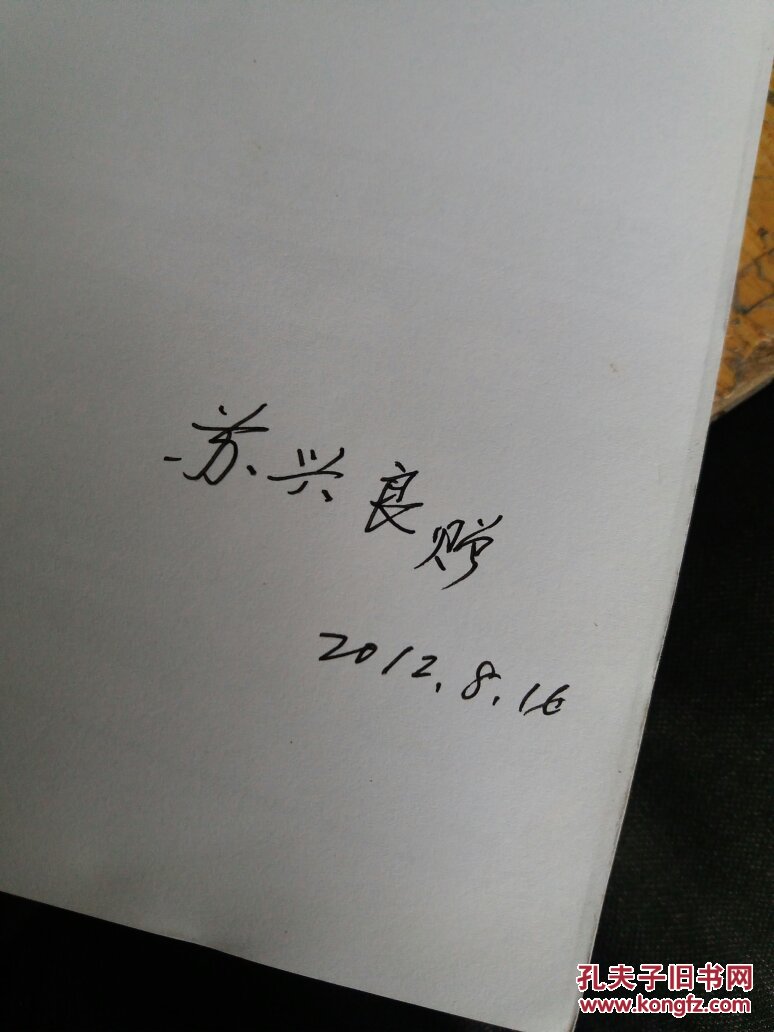 苏兴良赠
2012.8.16
孔夫子旧书网
www.kongfz.com